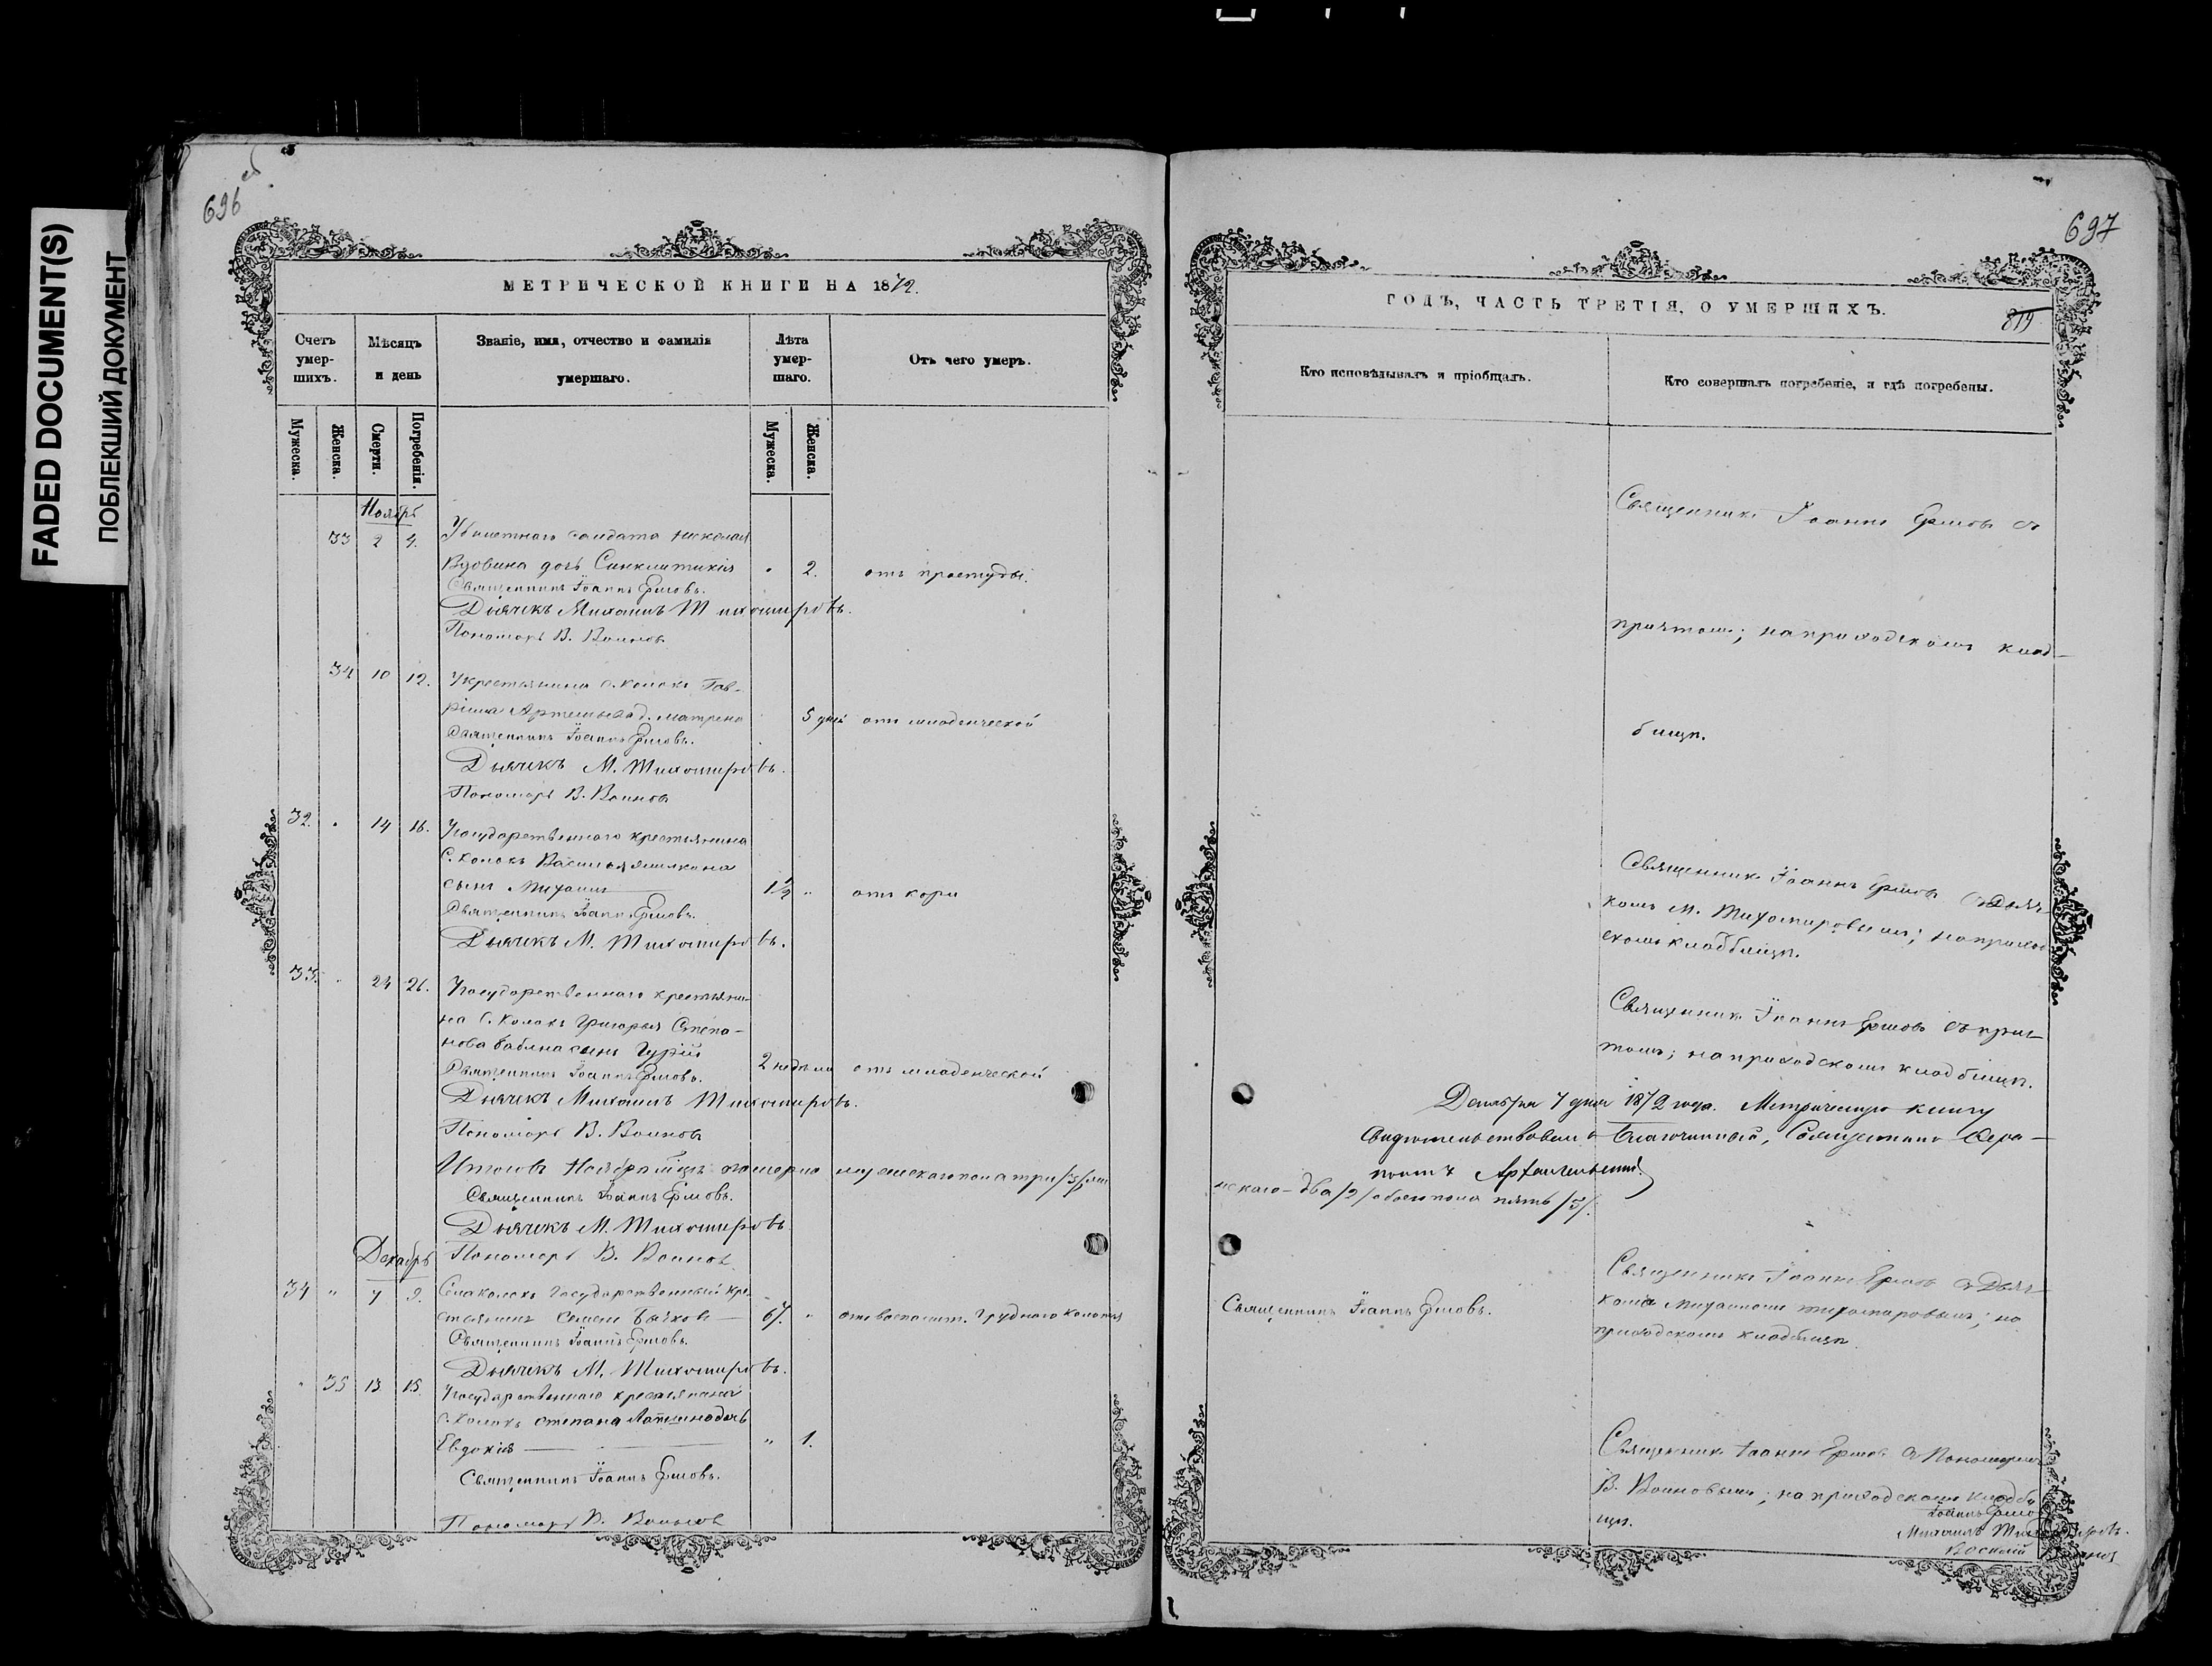 FADED DOCUMENT(S)
ПОБЛЕКШИЙ ДОКУМЕНТ
696 об
МЕТРИЧЕСКОЙ КНИГИ НА 1872.
Счетъ умер-шихъ.
Мѣсяцъ и день
Званіе, имя, отчество и фамилія умершаго.
Лѣта умер-шаго.
Отъ чего умеръ.
Мужеска.
Женска.
Смерти.
Погребенія.
Мужеска.
Женска.
Ноябрь
33 2 4. Убилетнаго солдата Николая
Вдовина дочь Синклитикія " 2. отъ простуды.
Священникъ Іоаннъ Ершовъ.
Дьячекъ Михаилъ Тихомировъ.
Пономарь В. Воиновъ
34 10 12. У крестьянина с. Колокъ Гав-
ріила Артемьева д. Матрена 5 дней отъ младенческой
Священникъ Іоаннъ Ершовъ.
Дьячекъ М. Тихомировъ.
Пономарь В. Воиновъ
32. " 14 16. У государственнаго крестьянина
С. Колокъ Василья
сынъ Михаилъ 1½ " отъ кори
Священникъ Іоаннъ Ершовъ.
Дьячекъ М. Тихомировъ.
33. " 24 26. У государственнаго крестьяни-
на С. Колокъ Григорья Степа-
нова сынъ Гурій
2 недѣли отъ младенческой
Священникъ Іоаннъ Ершовъ.
Дьячекъ Михаилъ Тихомировъ.
Пономарь В. Воиновъ
Итого въ Ноябрѣ м̃цѣ померло мужескаго пола три /3/ жен
Священникъ Іоаннъ Ершовъ.
Дьячекъ М. Тихомировъ
Декабрь
Пономарь В. Воиновъ
34 " 7 9. Села Колокъ государственный кре-
стьянинъ Семенъ Бычковъ 67. " отъ воспалит. груднаго колотья
Священникъ Іоаннъ Ершовъ.
Дьячекъ М. Тихомировъ.
" 35 13 15. У государственнаго крестьянина
С. Колокъ Степана дочь
Евдокія " 1.
Священникъ Іоаннъ Ершовъ.
Пономарь В. Воиновъ
697
ГОДЪ, ЧАСТЬ ТРЕТІЯ, О УМЕРШИХЪ.
819
Кто исповѣдывалъ и пріобщалъ.
Кто совершалъ погребеніе, и гдѣ погребены.
Священникъ Іоаннъ Ершовъ съ
причтомъ; на приходскомъ клад-
бищѣ.
Священникъ Іоаннъ Ершовъ съ Дьяч-
комъ М. Тихомировымъ; на приход
скомъ кладбищѣ.
Священникъ Іоаннъ Ершовъ съ прич-
томъ; на приходскомъ кладбищѣ.
Декабря 7 дня 1872 года. Метрическую книгу
свидѣтельствовалъ Благочинный, Священникъ Фера-
понтъ Архангельскій
нскаго - два /2/ обоего пола пять /5/.
Священникъ Іоаннъ Ершовъ.
Священникъ Іоаннъ Ершовъ съ Дьяч-
комъ Михаиломъ Тихомировымъ; на
приходскомъ кладбищѣ.
Священникъ Іоаннъ Ершовъ съ Пономаремъ
В. Воиновымъ; на приходскомъ кладби
щѣ.
Іоаннъ Ершовъ
Михаилъ Тихомировъ.
Василій Воиновъ